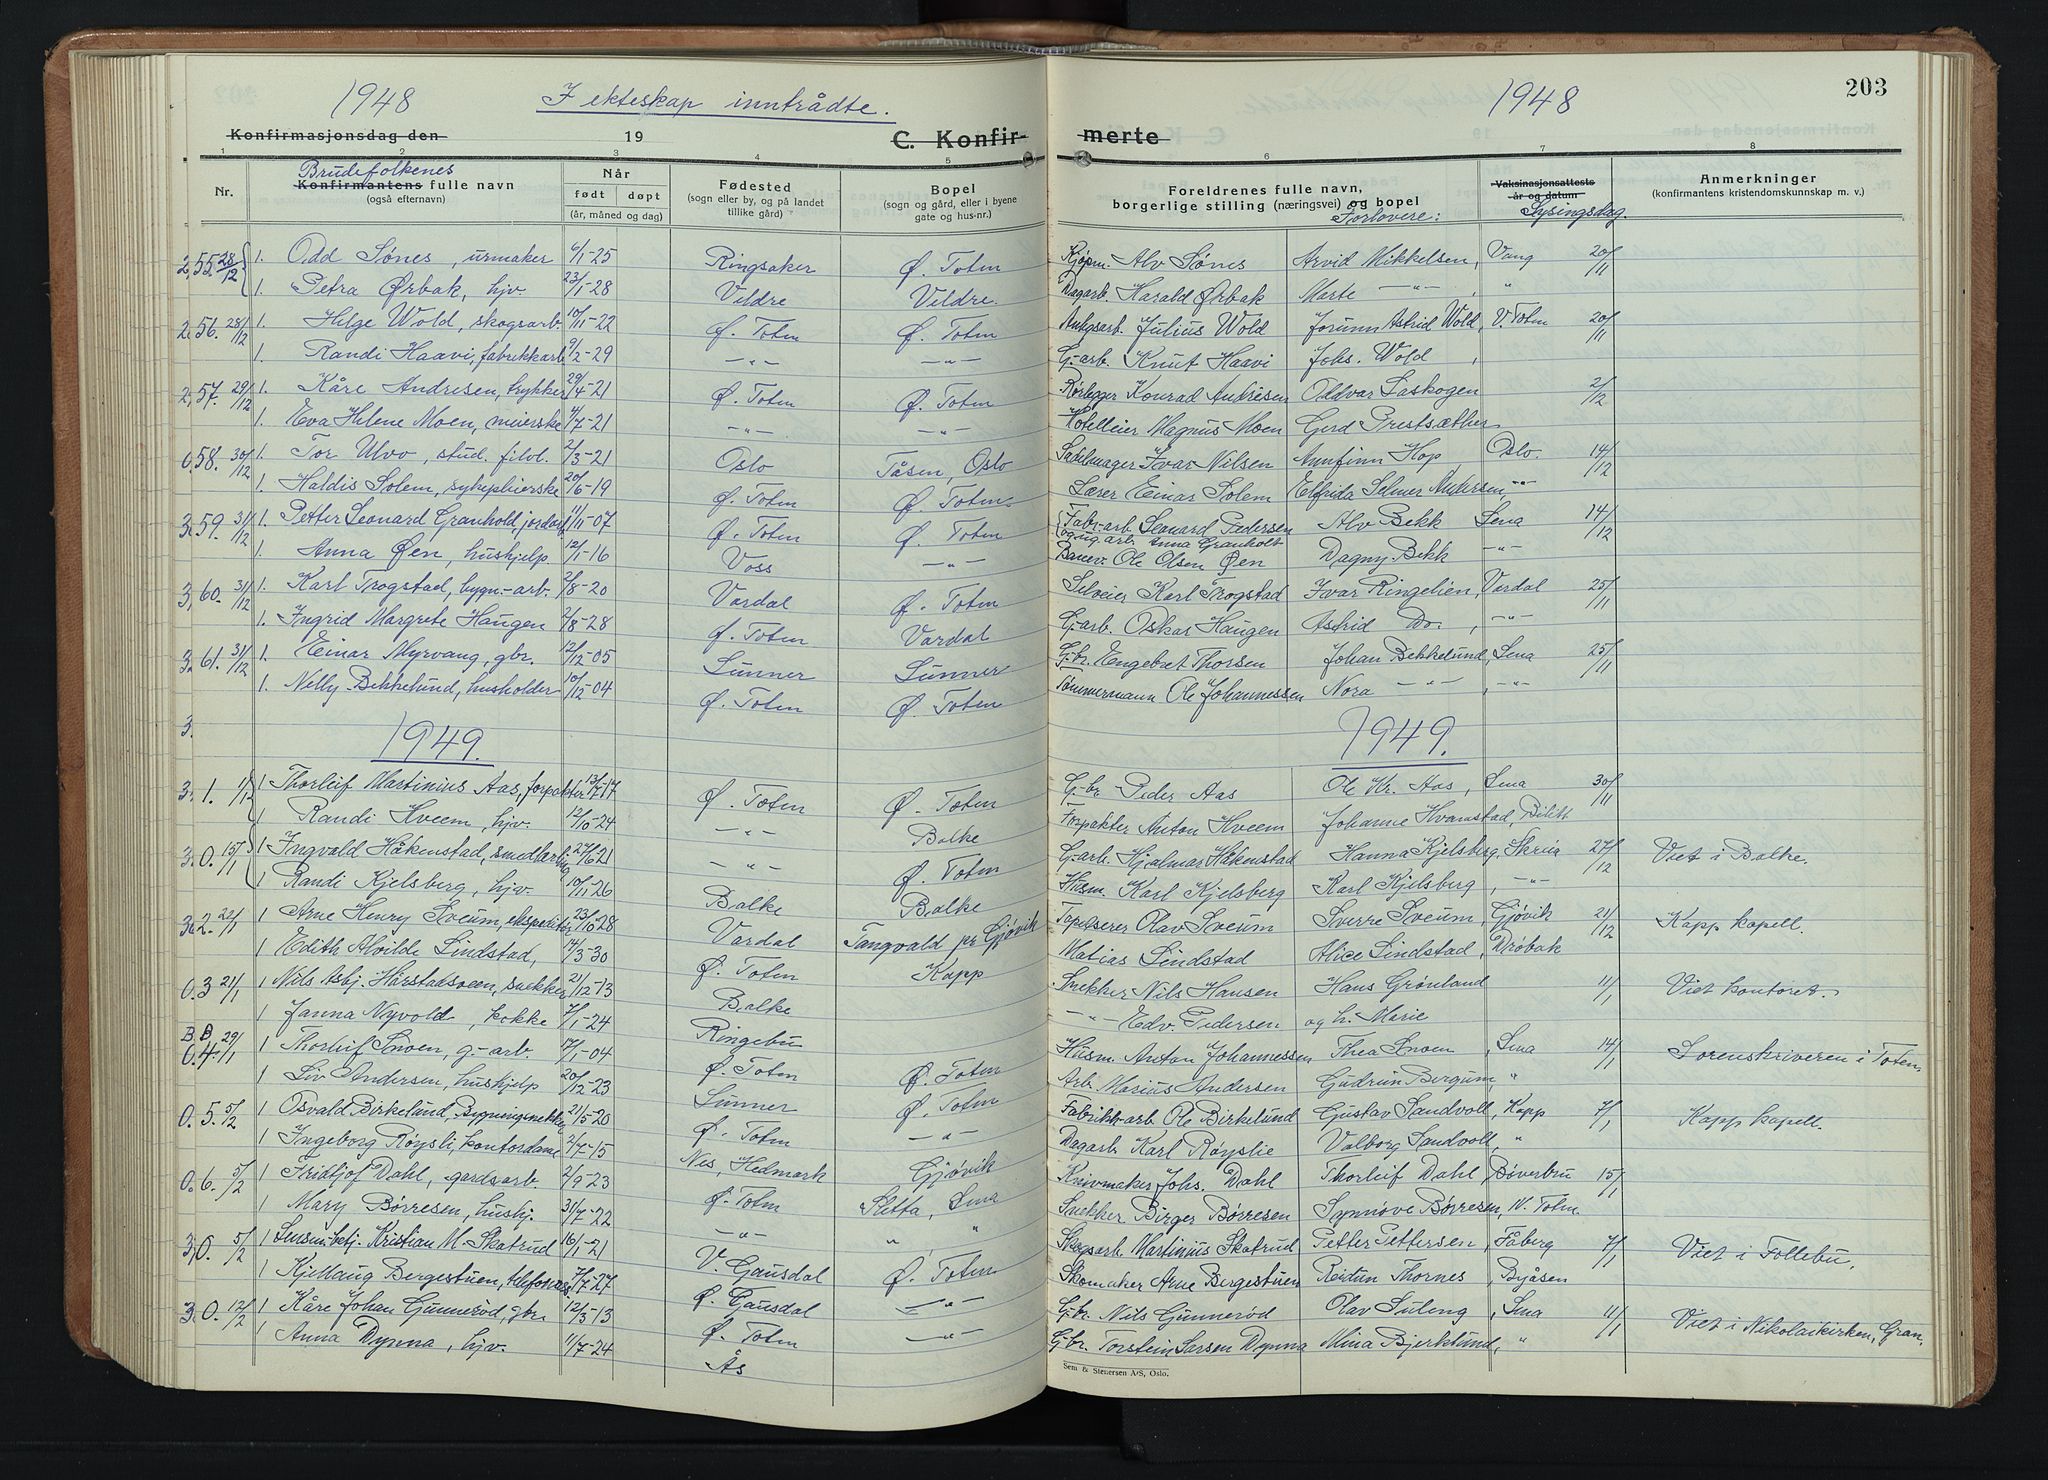 1948 I ekteskap inntrådte. 1948 203
Konfirmasjonsdag den 19 C. Konfir- merte
1 2 3 4 5 6 7 8
Nr. Brudefolkenes Konfirmantens fulle navn Når Fødested Bopel Foreldrenes fulle navn, Vaksinasjonsattests Anmerkninger
(også efternavn) født døpt (sogn eller by, og på landet (sogn og gård, eller i byene borgerlige stilling (næringsvei) og bopel år og datum (konfirmantens kristendomskunnskap m. v.)
(år, måned og dag) tillike gård) gate og hus-nr.) Forlovere: Lysingsdag.
2,55 28/12 1. Odd Sønes, urmaker 6/1-25 Ringsaker Ø. Toten Kjøpm. Alv Sønes Arvid Mikkelsen, Vang 20/11
1. Petra Ørbak, hjv. 23/1-28 Veldre Veldre. Dagarb. Harald Ørbak Marte -"- , "
2.56. 28/12 1. Helge Wold, skogsarb. 10/11-22 Ø. Toten Ø. Toten Anlgsarb. Julius Wold Jorunn Astrid Wold, V. Toten 20/11
1. Randi Haavi, fabrikkarb. 9/2-29 -"- -"- G.-arb. Knut Haavi Johs. Wold ,
2,57. 29/12 1. Kåre Andresen, trykker 29/4-21 Ø. Toten Ø. Toten Rørlegger Konrad Andresen Oddvar Laskogen 2/12
1. Eva Helene Moen, meierske 4/7-21 -"- -"- Hotelleier Magnus Moen Gerd Prestsæther
0,58. 30/12 1. Tor Ulvo, stud. filol. 2/3-21 Oslo Tåsen, Oslo Sadelmager Ivar Nilsen Annfinn Hop, Oslo. 14/12
1. Haldis Solem, sykepleierske 20/6-19 Ø. Toten Ø. Toten Lærer Einar Solem Elfrida Selmer Andersen, -"-
3,59. 31/12 1. Petter Leonard Granholt jordarb. 11/11-07 Ø. Toten Ø. Toten Fabr.-arb. Leonard Pedersen Alv Bekk Lena 14/12
og ug. arb. Anna Granholt
1. Anna Øen, hushjelp. 12/1-16 Voss -"- Banev. Ole Olsen Øen Dagny Bekk -"-
3,60. 31/12 1. Karl Trogstad, bygn.-arb. 2/8-20 Vardal Ø. Toten Selveier Karl Trogstad Ivar Ringelien, Vardal 25/11
1. Ingrid Margrete Haugen 2/8-28 Ø. Toten Vardal G-arb. Oskar Haugen Astrid Do. , -"-
3.61. 31/12 1. Einar Myrvang, gbr. 12/12-05 Lunner Lunner G.-br. Engebret Thorsen Johan Bekkelund, Lena 25/11
1. Nelly Bekkelund, husholder 10/12-04 Ø. Toten Ø. Toten Tømmermann Ole Johannessen Nora -"- , -"-
3.
1949. 1949.
3.1. 1/1 1 Thorleif Martinius Aas, forpakter 13/7-17 Ø. Toten Ø. Toten G-br Peder Aas Ole Kr. Aas, Lena 30/11
1 Randi Hveem, hjv. 12/10-24 -"- Balke Forpakter Anton Hveem Johanne Hvamstad, Bilitt
3.0. 15/1 1 Ingvald Håkenstad, smedlærling 27/6-21 -"- Ø. Toten G-arb. Hjalmar Håkenstad Hanna Kjelsberg, Skreia 27/12 Viet i Balke.
1 Randi Kjelsberg, hjv. 10/11-26 Balke Balke Husm. Karl Kjelsberg Karl Kjelsberg , -"-
3.2. 22/1 1 Arne Henry Sveum, ekspeditør 23/10-28 Vardal Tangvald pr Gjøvik Tapetserer Olav Sveum Sverre Sveum, Gjøvik 21/12 Kapp kapell.
1 Edith Alvilde Lindstad, 14/3-30 Ø. Toten Kapp Matias Lindstad Alice Lindstad, Drøbak
0.3 21/1 1 Nils Asbj. Harstadsveen, snekker 21/12-13 Balke Snekker Nils Hansen Hans Grønland 11/1 Viet kontoret.
1 Janna Nyvold, kokke 7/1-24 Ringebu -"- Edv. Pedersen og h. Marie
B.B.
0.4. 29/1 1 Thorleif Snoen, g.-arb. 17/1-04 Ø. Toten Ø. Toten Husm. Anton Johannessen Thea Snoen , Lena 14/1 Sorenskriveren i Toten,
1 Liv Andersen, hushjelp 20/12-23 Lunner Ø. Toten Arb. Marius Andersen Gudrun Bergum "
0.5. 5/2 1 Osvald Birkelund, Bygningssnekker 21/5-20 Ø. Toten -"- Fabrikk-arb. Ole Birkelund Gustav Sandvoll, Kapp 7/1 Kapp kapell.
1 Ingeborg Røysli, kontordame 2/7-15 Nes, Hedmark Gjøvik Dagarb. Karl Røyslie Valborg Sandvoll, "
0.6. 5/2 1 Fridtjof Dahl, gardsarb. 2/9-23 Ø. Toten Sletta, Lena Knivmaker Johs. Dahl Thorleif Dahl, Bøverbru 15/1
1 Mary Børresen, hushj. 31/7-22 -"- " , " Snekker Birger Børresen Synnøve Børresen, V. Toten
3,0. 5/2 1 Lensm.betj. Kristian M. Skatrud 16/1-21 V. Gausdal Ø. Toten Skogsarb. Martinius Skatrud Petter Pettersen, Fåberg 7/1 Viet i Follebu.
1 Kjellaug Bergestuen, telefonass. 7/7-27 Ø. Gausdal -"- Skomaker Arne Bergestuen Reidun Thornes, Byåsen
3.0. 12/2 1 Kåre Johan Gunnerød, gbr. 12/3-13 Ø. Toten -"- G.-br. Nils Gunnerød Olav Suleng , Lena 11/1 Viet i Nikolaikirken, Gran.
1 Anna Dynna, hjv. 11/7-24 Ås G-br. Torstein Larsen Dynna Mina Bjerklund, "
Sem & Stenersen A/S, Oslo.